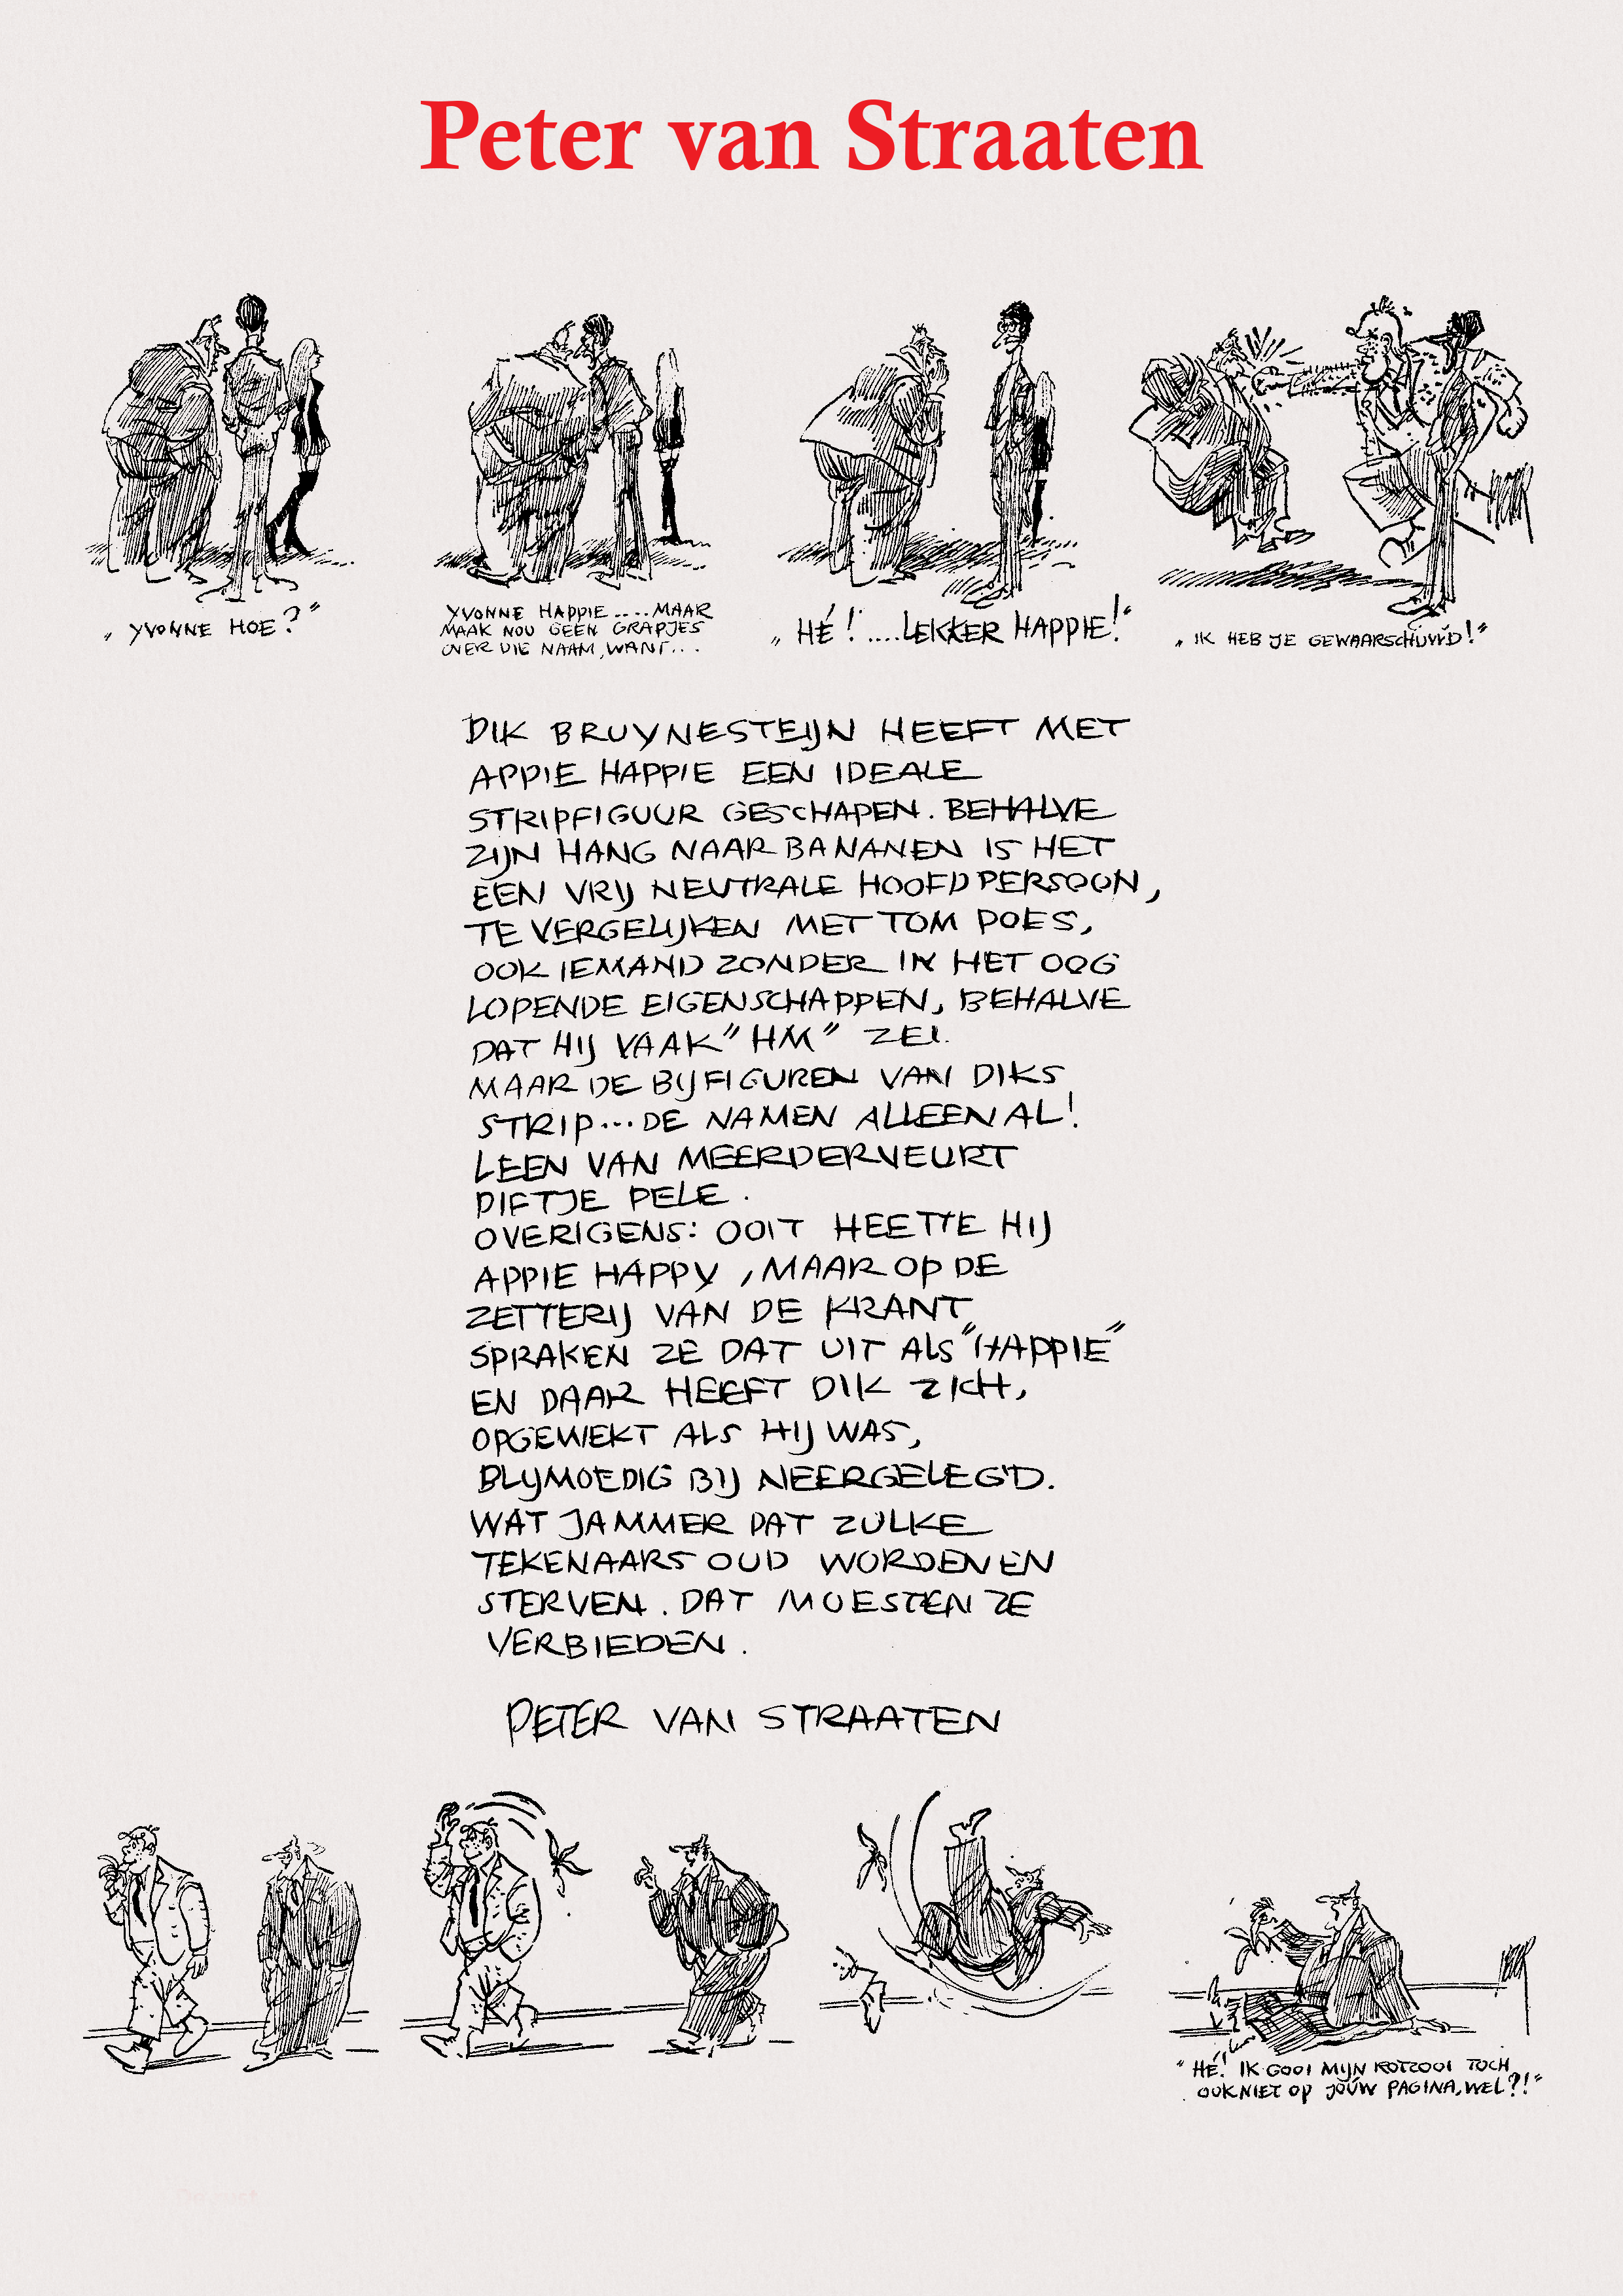 Peter van Straaten
„ YVONNE HOE?"
YVONNE HAPPIE....MAAR
MAAK NOU GEEN GRAPJES
OVER DIE NAAM, WANT...
„ HÉ!....LEKKER HAPPIE!"
„ IK HEB JE GEWAARSCHUWD!"
DIK BRUYNESTEIJN HEEFT MET
APPIE HAPPIE EEN IDEALE
STRIPFIGUUR GESCHAPEN. BEHALVE
ZIJN HANG NAAR BANANEN IS HET
EEN VRIJ NEUTRALE HOOFDPERSOON,
TE VERGELIJKEN MET TOM POES,
OOK IEMAND ZONDER IN HET OOG
LOPENDE EIGENSCHAPPEN, BEHALVE
DAT HIJ VAAK "HM" ZEI.
MAAR DE BIJFIGUREN VAN DIKS
STRIP...DE NAMEN ALLEEN AL!
LEEN VAN MEERDERVEURT
DIFTJE PELE.
OVERIGENS: OOIT HEETTE HIJ
APPIE HAPPY, MAAR OP DE
ZETTERIJ VAN DE KRANT
SPRAKEN ZE DAT UIT ALS "HAPPIE"
EN DAAR HEEFT DIK ZICH,
OPGEWEKT ALS HIJ WAS,
BLIJMOEDIG BIJ NEERGELEGD.
WAT JAMMER DAT ZULKE
TEKENAARS OUD WORDEN EN
STERVEN. DAT MOESTEN ZE
VERBIEDEN.
PETER VAN STRAATEN
"HÉ! IK GOOI MIJN ROTZOOI TOCH
OOK NIET OP JOÚW PAGINA, WEL?!"